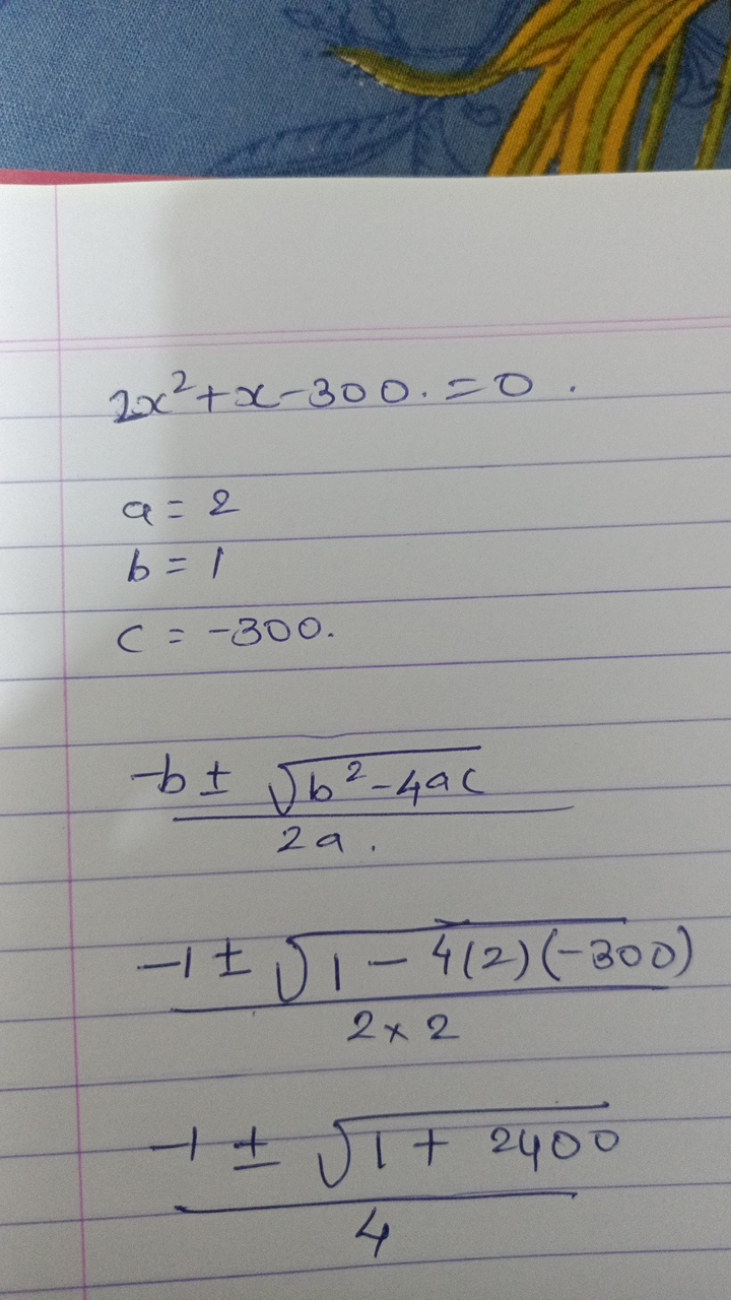 2x²+x-300.=0.
a = 2
b = 1
c = -300.
-b ± √b²-4ac
2a.
-1 ± √1 - 4(2)(-300)
2×2
-1 ± √1 + 2400
4